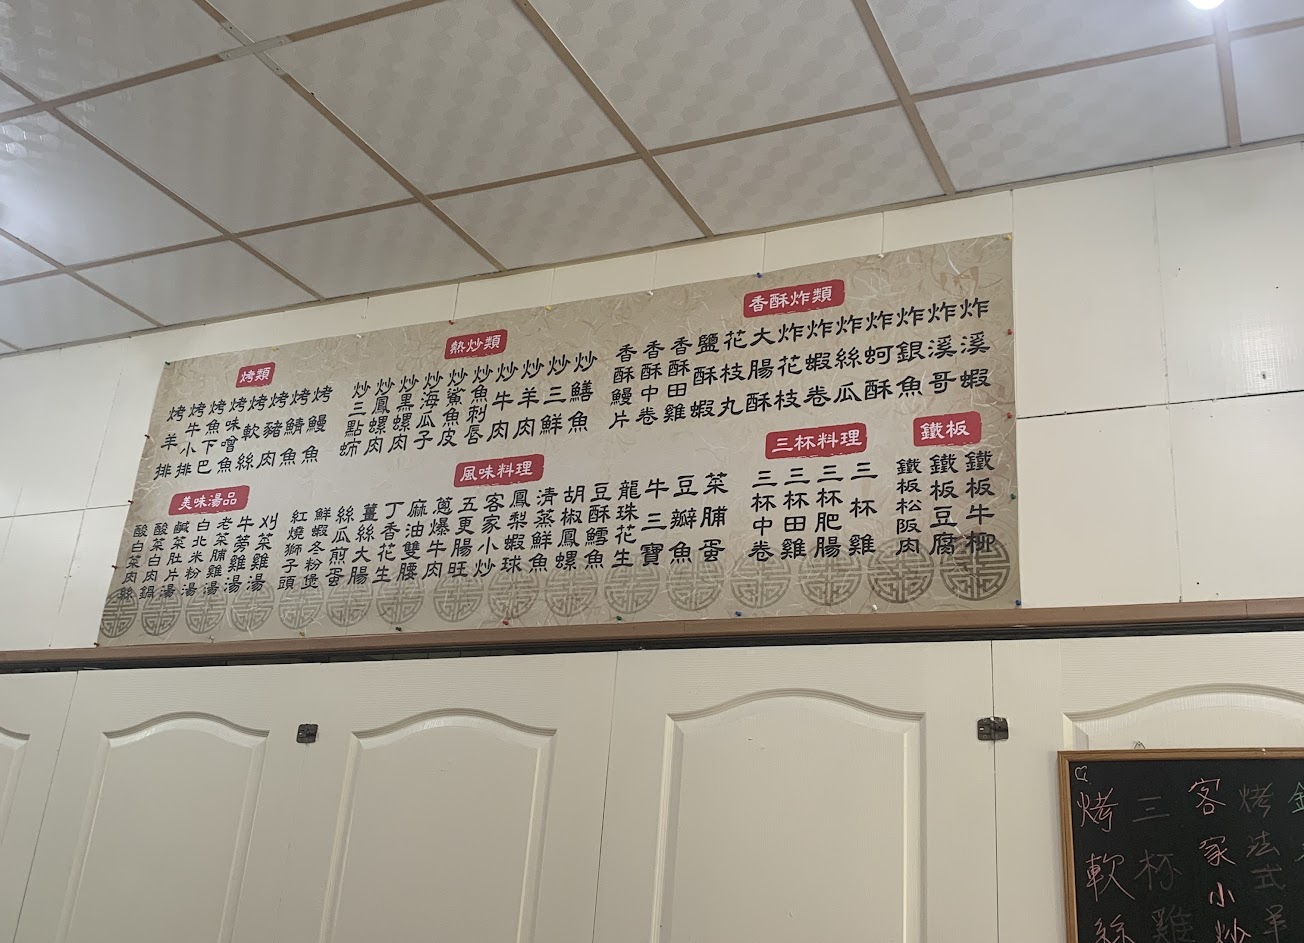 香酥炸類
炸溪蝦
炸溪哥
炸銀魚
炸蚵酥
炸絲瓜
炸蝦卷
炸花枝
大腸酥
花枝丸
鹽酥蝦
香酥田雞
香酥中卷
香酥鰻片
熱炒類
炒鱔魚
炒三鮮
炒羊肉
炒牛肉
炒魚刺唇
炒鯊魚皮
炒海瓜子
炒黑螺肉
炒鳳螺肉
炒三點
烤類
烤鰻魚
烤鯖魚
烤豬肉
烤軟絲
烤味噌魚
烤魚下巴
烤牛小排
烤羊排
鐵板
鐵板牛柳
鐵板豆腐
鐵板松阪肉
三杯料理
三杯雞
三杯肥腸
三杯田雞
三杯中卷
風味料理
菜脯蛋
豆瓣魚
牛三寶
龍珠花生
豆酥鱈魚
胡椒鳳螺
清蒸鮮魚
鳳梨蝦球
客家小炒
五更腸旺
蔥爆牛肉
麻油雙腰
丁香花生
薑絲大腸
絲瓜煎蛋
鮮蝦冬粉煲
紅燒獅子頭
美味湯品
刈菜雞湯
牛蒡雞湯
老菜脯雞湯
白北米粉湯
鹹菜肚片湯
酸菜白肉鍋
酸白菜肉絲
烤法式羊
客家小炒
三杯雞
烤軟絲